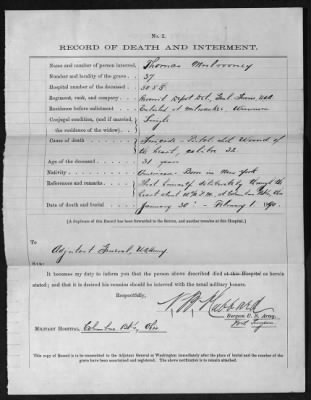 No. 2.
RECORD OF DEATH AND INTERMENT.
Name and number of person interred, Thomas
Number and locality of the grave 37
Hospital number of the deceased
Regiment, rank, and company Recruit Depot Det.
Residence before enlistment Enlisted at Milwaukee, Wisconsin
Conjugal condition, (and if married, Single
the residence of the widow)
Cause of death Suicide - Pistol shot Wound of
heart, calibre 32
Age of the deceased 31 years
Nativity American - Born in New York
References and remarks Shot himself deliberately through the
heart about at Columbus
Date of death and burial January 30" - February 1, 1890.
(A duplicate of this Record has been forwarded to the Sexton, and another remains at this Hospital.)
To
Adjutant General, U.S. Army
SIR:
It becomes my duty to inform you that the person above described died at this Hospital as herein
stated; and that it is desired his remains should be interred with the usual military honors.
Respectfully,
Hubbard
Surgeon U. S. Army,
Post Surgeon
MILITARY HOSPITAL, Columbus Bk's, Ohio
This copy of Record is to be transmitted to the Adjutant General at Washington immediately after the place of burial and the number of the
grave have been ascertained and registered. The above notification is to remain attached.